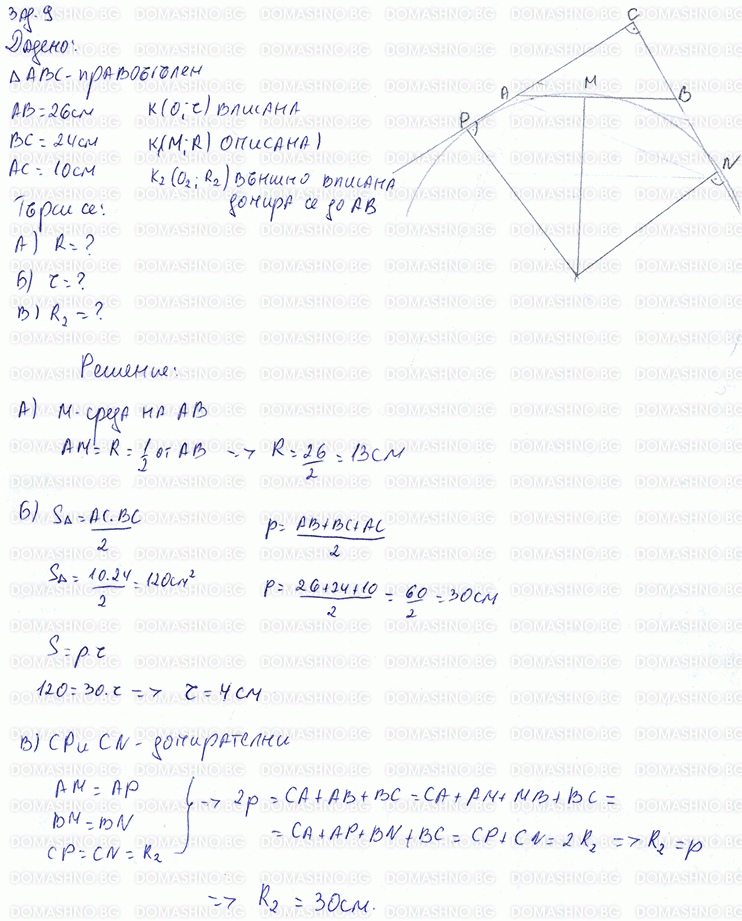 Зад. 9
Дадено:
△ABC - правоъгълен
AB = 26 см K(O; r) вписана
BC = 24 см K₁(M; R) описана
AC = 10 см K₂(O₂; R₂) външно вписана
допира се до AB
Търси се:
А) R = ?
Б) r = ?
В) R₂ = ?
C
A M B
P
N
Решение:
А) M - среда на AB
AM = R = 1/2 от AB => R = 26/2 = 13 см
Б) S△ = AC.BC/2 p = AB+BC+AC/2
S△ = 10.24/2 = 120 см² p = 26+24+10/2 = 60/2 = 30 см
S = p.r
120 = 30.r => r = 4 см
В) CP и CN - допирателни
AM = AP
BM = BN
CP = CN = R₂
} -> 2p = CA + AB + BC = CA + AM + MB + BC =
= CA + AP + BN + BC = CP + CN = 2R₂ => R₂ = p
=> R₂ = 30 см.
DOMASHNO.BG